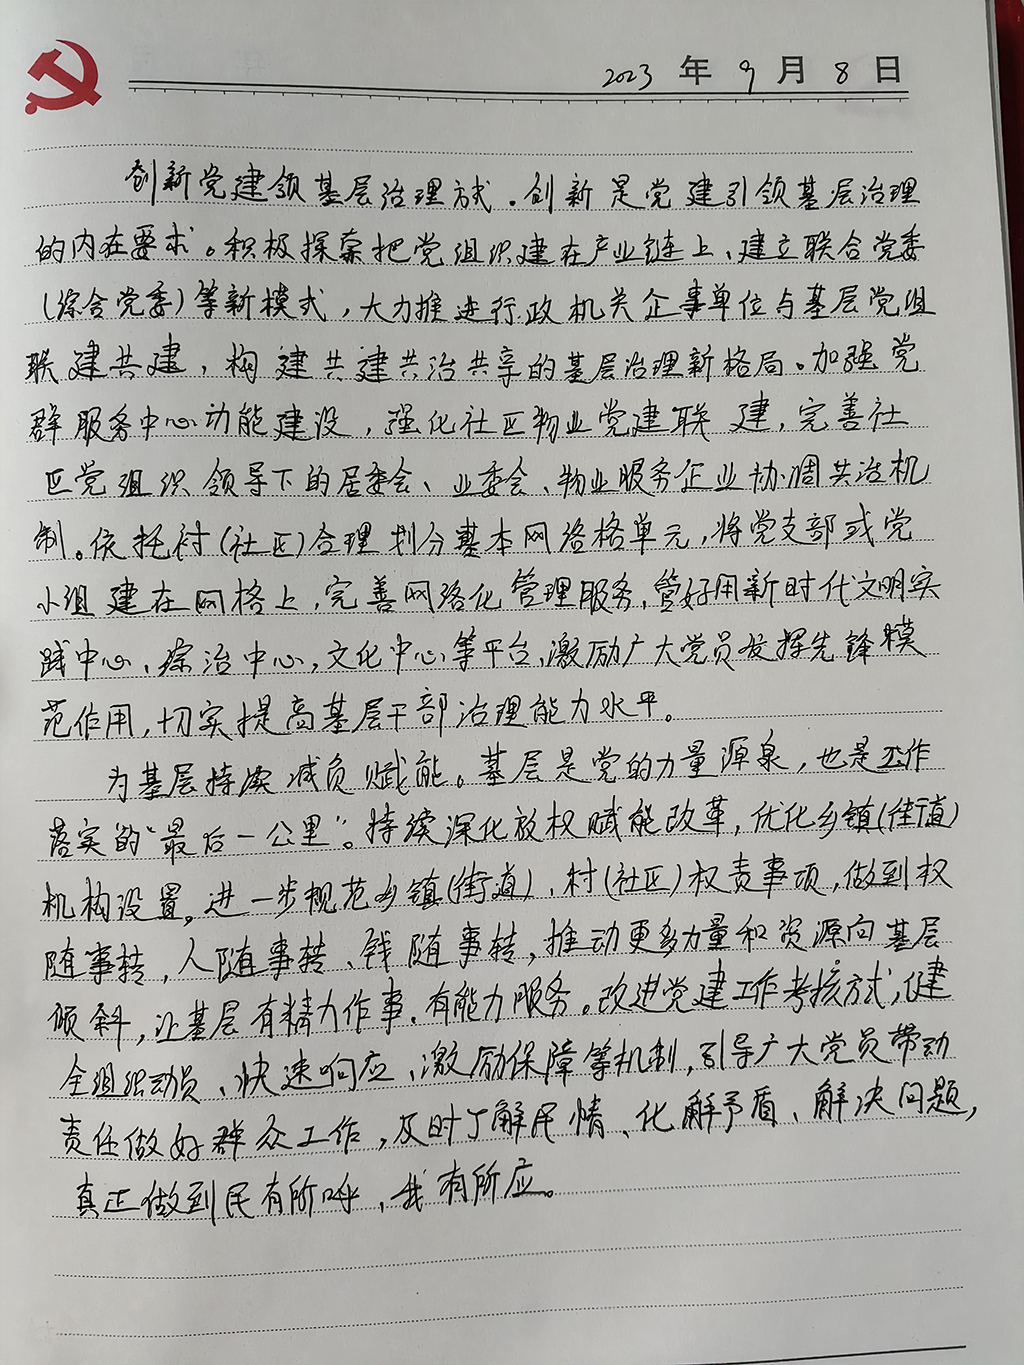 2023年9月8日
创新党建领基层治理方式。创新是党建引领基层治理
的内在要求。积极探索把党组织建在产业链上、建立联合党委
(综合党委)等新模式，大力推进行政机关企事单位与基层党组
联建共建，构建共建共治共享的基层治理新格局。加强党
群服务中心功能建设，强化社区物业党建联建，完善社
区党组织领导下的居委会、业委会、物业服务企业协调共治机
制。依托村(社区)合理划分基本网络格单元，将党支部或党
小组建在网格上，完善网络化管理服务，管好用新时代文明实
践中心、综治中心，文化中心等平台，激励广大党员发挥先锋模
范作用，切实提高基层干部治理能力水平。
为基层持续减负赋能。基层是党的力量源泉，也是工作
落实的“最后一公里”。持续深化放权赋能改革，优化乡镇(街道)
机构设置，进一步规范乡镇(街道)、村(社区)权责事项，做到权
随事转，人随事转、钱随事转，推动更多力量和资源向基层
倾斜，让基层有精力作事、有能力服务。改进党建工作考核方式，健
全组织动员、快速响应、激励保障等机制，引导广大党员带动
责任做好群众工作，及时了解民情、化解矛盾、解决问题，
真正做到民有所呼、我有所应。